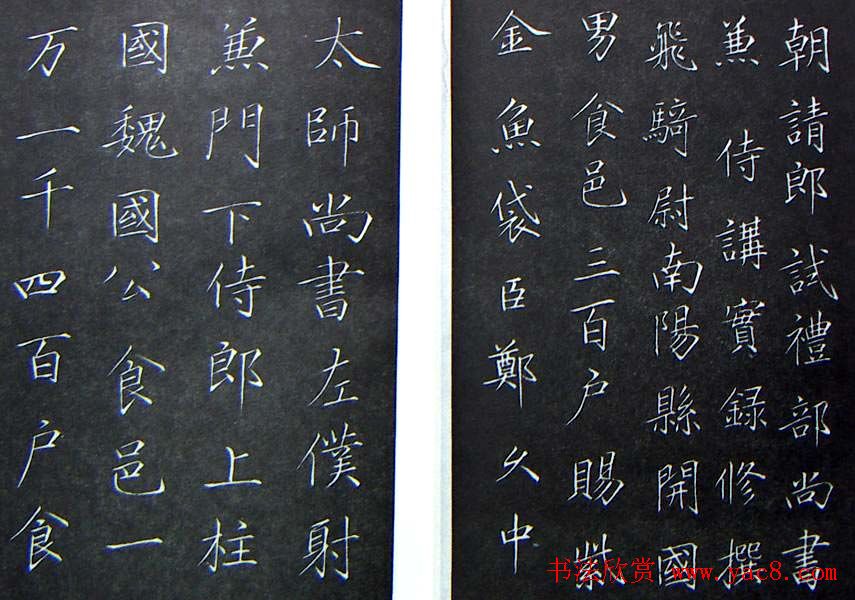 朝請郎試禮部尚書
兼侍講實録修撰
飛騎尉南陽縣開國
男食邑三百户賜紫
金魚袋臣鄭久中
太師尚書左僕射
兼門下侍郎上柱
國魏國公食邑一
万一千四百户食
书法欣赏 www.yac8.com